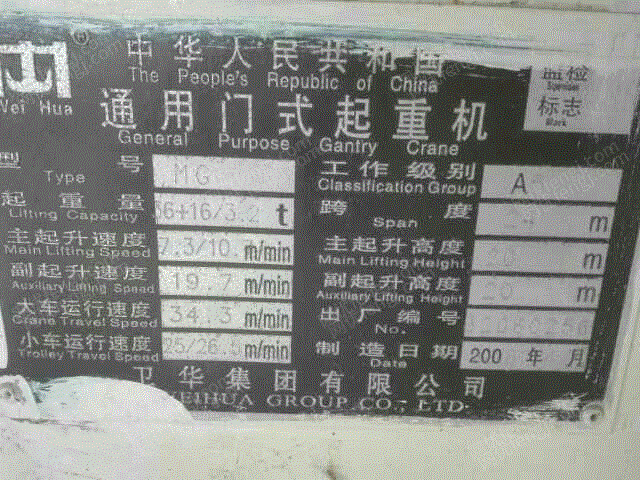 中华人民共和国
The People's Republic of China
监检
标志
Mark
Wei Hua
通用门式起重机
General Purpose Gantry Crane
型 号 MG
Type
工作级别 A
Classification Group
起重量 t
Lifting Capacity
跨 度 m
Span
主起升速度 7.3/10. m/min
Main Lifting Speed
主起升高度 20 m
Main Lifting Height
副起升速度 19.7 m/min
Auxiliary Lifting Speed
副起升高度 20 m
Auxiliary Lifting Height
大车运行速度 34.3 m/min
Crane Travel Speed
出厂编号
No.
小车运行速度 m/min
Trolley Travel Speed
制造日期 200 年 月
Date
卫华集团有限公司
WEIHUA GROUP CO., LTD.